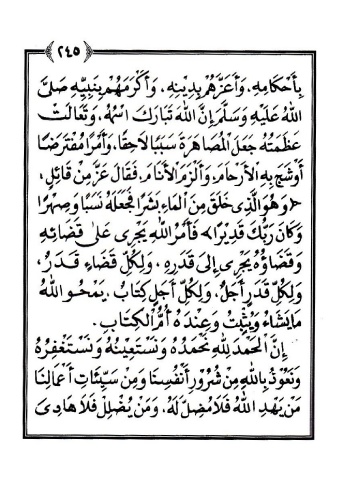 ﴿٢٤٥﴾
بِأَحْكَامِهِ، وَأَعَزَّهُمْ بِدِينِهِ، وَأَكْرَمَهُمْ بِنَبِيِّهِ صَلَّى
اللهُ عَلَيْهِ وَسَلَّمَ إِنَّ اللهَ تَبَارَكَ اسْمُهُ، وَتَعَالَتْ
عَظَمَتُهُ جَعَلَ الْمُصَاهَرَةَ سَبَبًا لَاحِقًا، وَأَمْرًا مُفْتَرَضًا
أَوْشَجَ بِهِ الْأَرْحَامَ، وَأَلْزَمَ الْأَنَامَ، فَقَالَ عَزَّ مِنْ قَائِلٍ،
﴿وَهُوَ الَّذِى خَلَقَ مِنَ الْمَاءِ بَشَرًا فَجَعَلَهُ نَسَبًا وَصِهْرًا
وَكَانَ رَبُّكَ قَدِيرًا﴾ فَأَمْرُ اللهِ يَجْرِى عَلَى قَضَائِهِ
وَقَضَاؤُهُ يَجْرِى إِلَى قَدَرِهِ، وَلِكُلِّ قَضَاءٍ قَدَرٌ،
وَلِكُلِّ قَدَرٍ أَجَلٌ، وَلِكُلِّ أَجَلٍ كِتَابٌ، يَمْحُو اللهُ
مَا يَشَاءُ وَيُثْبِتُ وَعِنْدَهُ أُمُّ الْكِتَابِ.
إِنَّ الْحَمْدَ لِلهِ نَحْمَدُهُ وَنَسْتَعِينُهُ وَنَسْتَغْفِرُهُ
وَنَعُوذُ بِاللهِ مِنْ شُرُورِ أَنْفُسِنَا وَمِنْ سَيِّئَاتِ أَعْمَالِنَا
مَنْ يَهْدِ اللهُ فَلَا مُضِلَّ لَهُ، وَمَنْ يُضْلِلْ فَلَا هَادِىَ